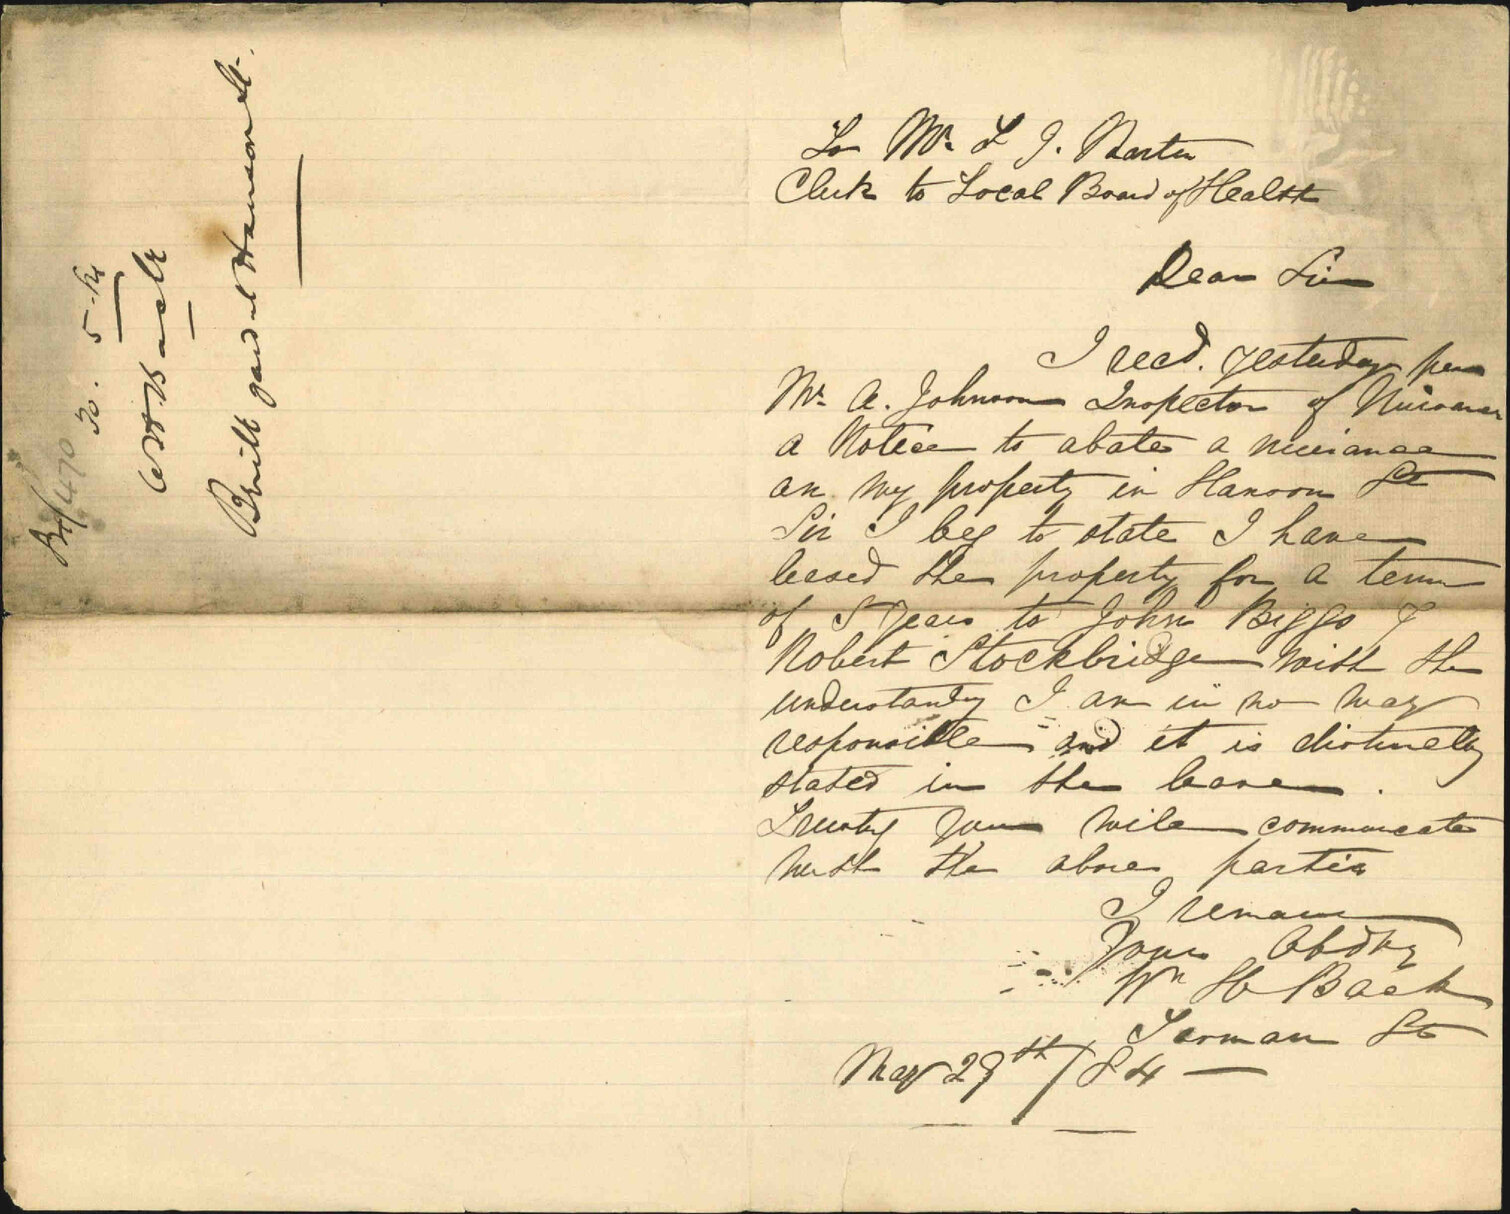 To Mr L J. Martin
Clerk to Local Board of Health
Dear Sir
I recd. yesterday per
Mr. A. Johnson Inspector of Nuisances
a Notice to abate a nuisance
on my property in Hanson St
Sir I beg to state I have
leased the property for a term
of 5 years to John Biggs &
Robert Stockbridge with the
understandg I am in no way
responsible and it is distinctly
stated in the lease.
Trustg you will communicate
with the above parties
I remain
Yours Obdtly
Wm H Back
Jarman St
May 29th/84
30. 5. 84
W H Back
Built Hanson St.